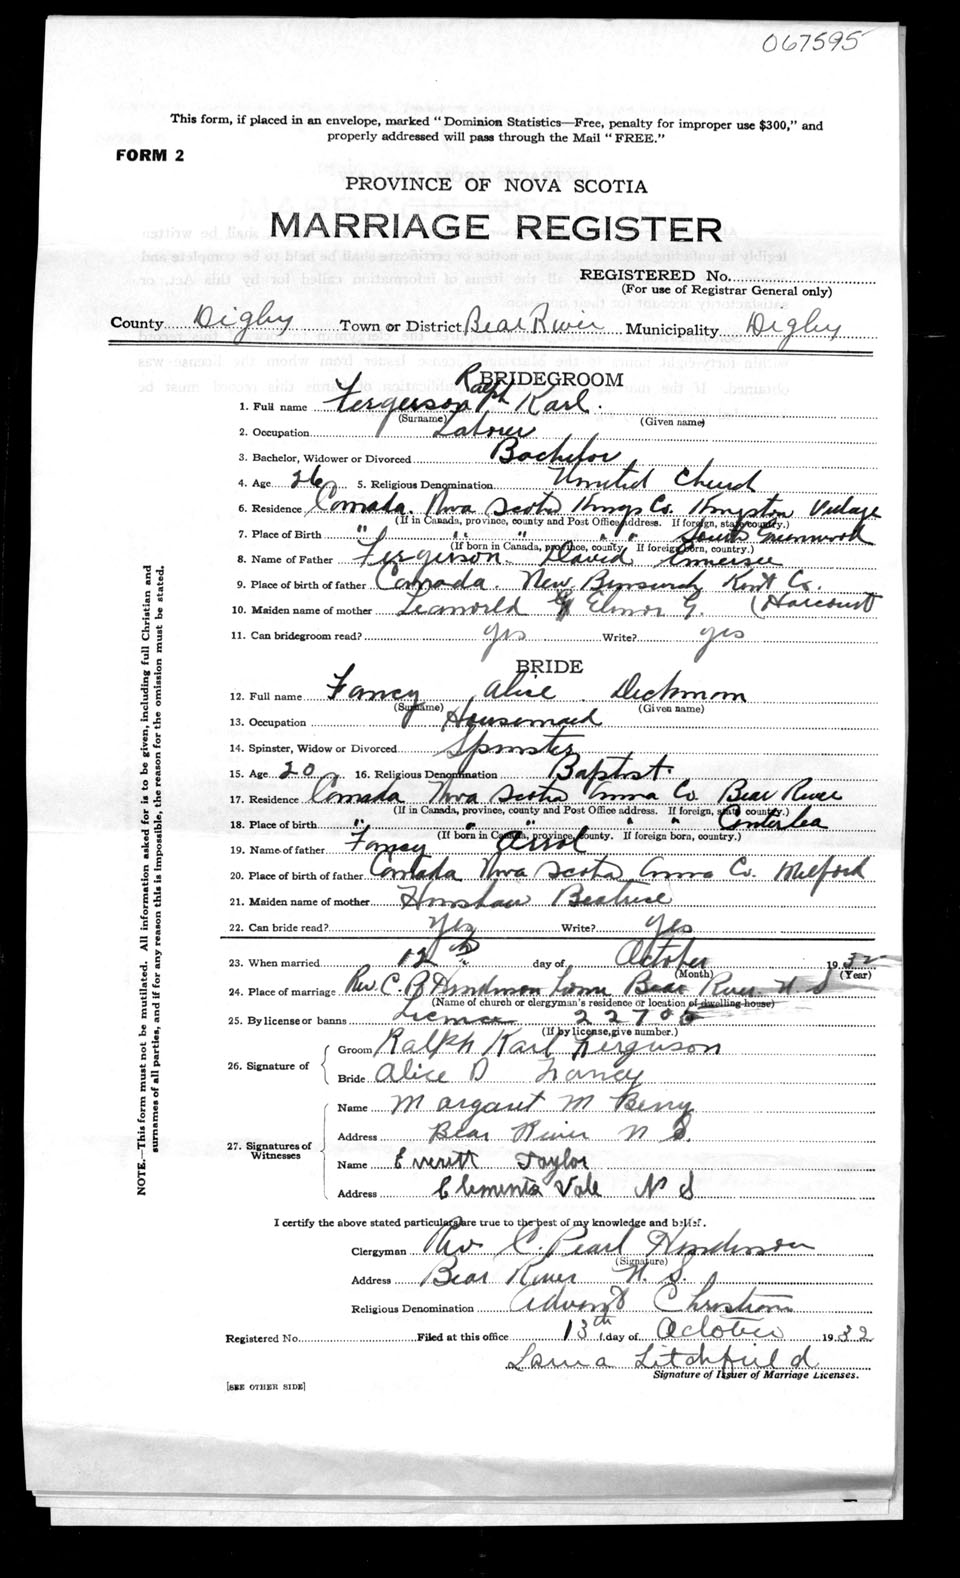 067595
This form, if placed in an envelope, marked "Dominion Statistics—Free, penalty for improper use $300," and
properly addressed will pass through the Mail "FREE."
FORM 2
PROVINCE OF NOVA SCOTIA
MARRIAGE REGISTER
REGISTERED No.
(For use of Registrar General only)
County Digby Town or District Bear River Municipality Digby
BRIDEGROOM
1. Full name Fergerson Ralph Karl.
(Surname) (Given name)
2. Occupation Labrer
3. Bachelor, Widower or Divorced Bachelor
4. Age 26 5. Religious Denomination United Church
6. Residence Canada. Nva Scotia Kings Co. Kingston Village
(If in Canada, province, county and Post Office address. If foreign, state country.)
7. Place of Birth " " " " South Greenwood
(If born in Canada, province, county. If foreign born, country.)
8. Name of Father Fergerson David
9. Place of birth of father Canada. New Kent Co.
10. Maiden name of mother Elmor G. (Harcourt
11. Can bridegroom read? yes Write? yes
BRIDE
12. Full name Fancy Alice Dickman
(Surname) (Given name)
13. Occupation Housemaid
14. Spinster, Widow or Divorced Spinster
15. Age 20 16. Religious Denomination Baptist.
17. Residence Canada Nva Scotia Anna Co Bear River
(If in Canada, province, county and Post Office address. If foreign, state country.)
18. Place of birth " " " "
(If born in Canada, province, county. If foreign born, country.)
19. Name of father Fancy Arrol
20. Place of birth of father Canada Nva Scotia Anna Co. Milford
21. Maiden name of mother Henshaw Beatrice
22. Can bride read? Yes Write? Yes
23. When married 12th day of October 1932
(Month) (Year)
24. Place of marriage Rev. C. P. Henderson home Bear River N S
(Name of church or clergyman's residence or location of dwelling house)
25. By license or banns License 22705
(If by license, give number.)
26. Signature of
Groom Ralph Karl Ferguson
Bride Alice D Fancy
27. Signatures of Witnesses
Name Margaret M Berry
Address Bear River N S.
Name Everett Taylor
Address Clements Vale N S
I certify the above stated particulars are true to the best of my knowledge and belief.
Clergyman Rev C. Pearl Henderson
(Signature)
Address Bear River N. S.
Religious Denomination Advent Christian
Registered No. Filed at this office 13th day of October 1932
Laura Litchfield
Signature of Issuer of Marriage Licenses.
[SEE OTHER SIDE]
NOTE.—This form must not be mutilated. All information asked for is to be given, including full Christian and
surnames of all parties, and if for any reason this is impossible, the reason for the omission must be stated.